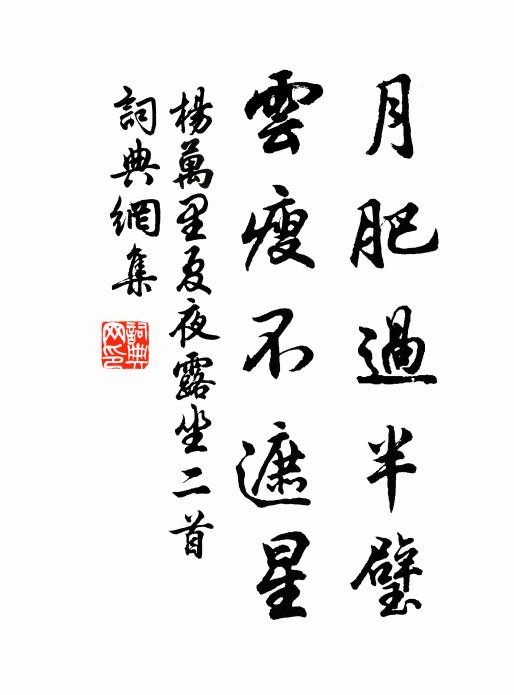 月肥過半璧
雲瘦不遮星
楊萬里夏夜露坐二首
詞典網集
詞典網印